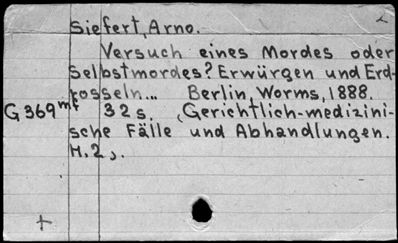 Siefert, Arno.
Versuch eines Mordes oder
Selbstmordes? Erwürgen und Erd-
rosseln... Berlin, Worms, 1888.
G 369 mf 32 s. (Gerichtlich-medizini-
sche Fälle und Abhandlungen.
H. 2).